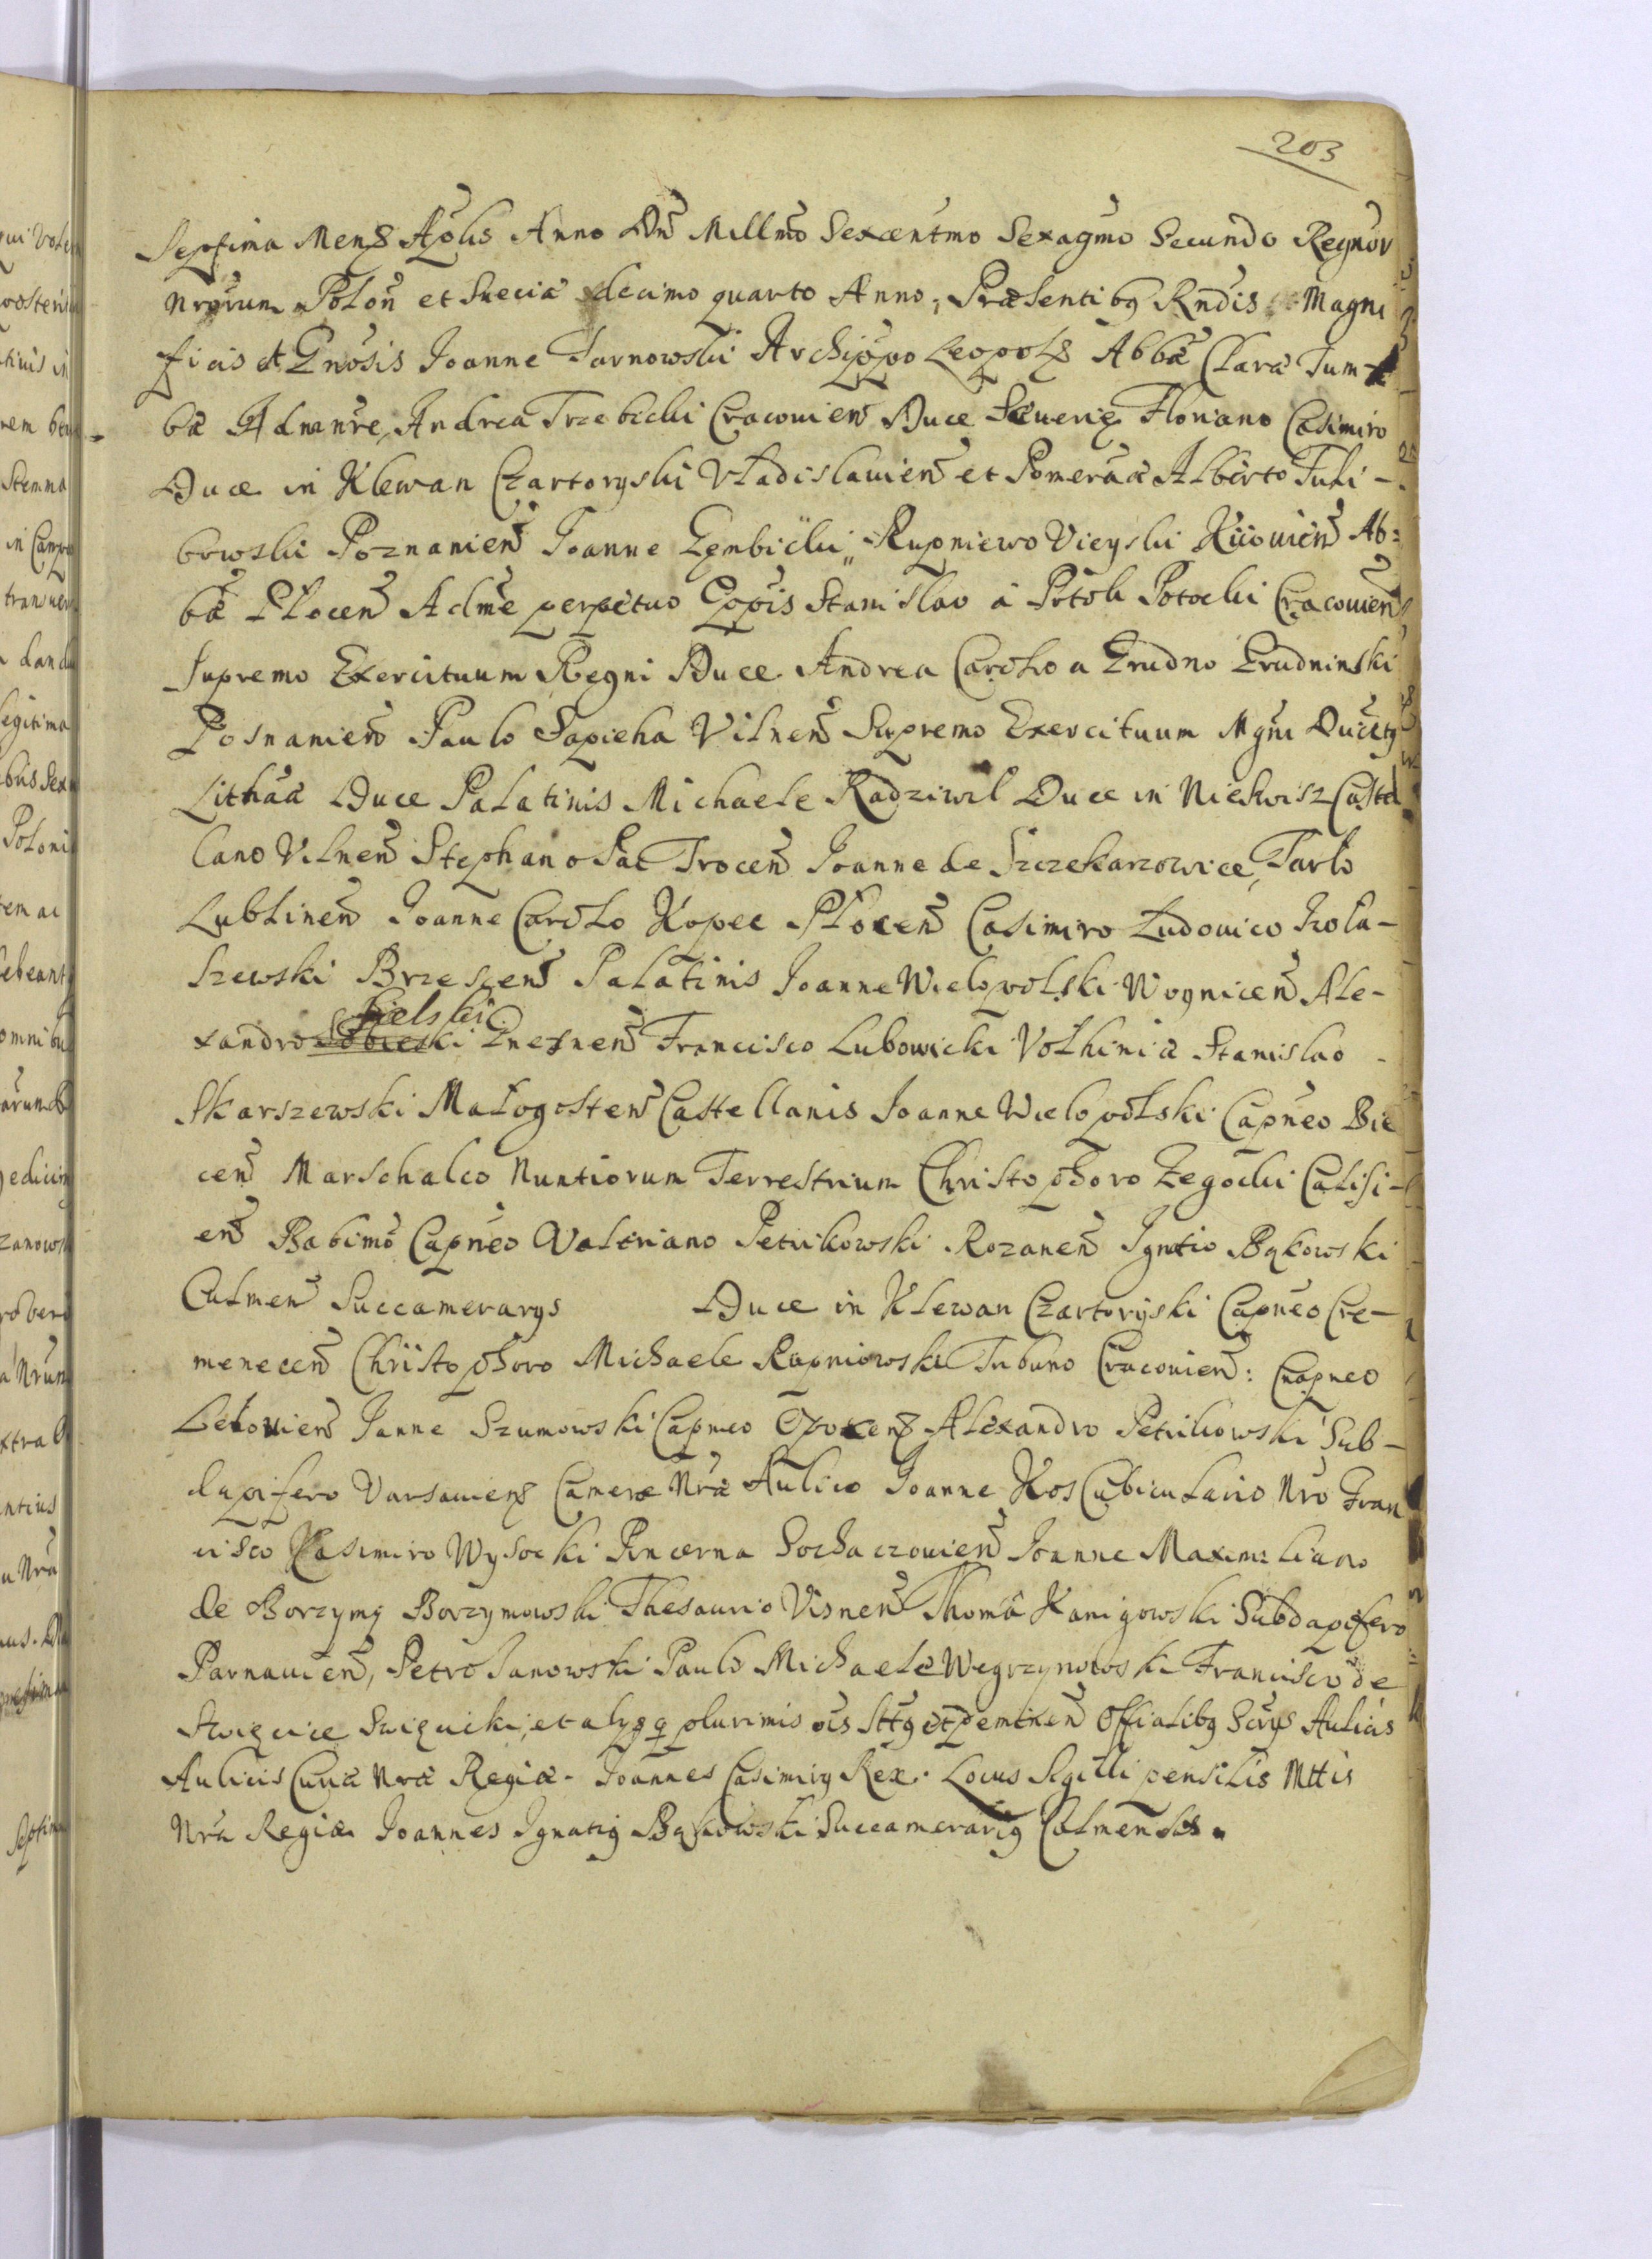 203
Septima Mens Aplis Anno Dni Millmo Sexcentmo Sexagmo Secundo Regnor
Nrorum Polon et Sueciæ decimo quarto Anno, Præsentibq Rndis Magni
ficis et Gnosis Joanne Tarnowski Archippo Leopols Abba Claræ Tum-
bæ Admnre, Andrea Trzebicki Cracovien Duce Severiæ Floriano Casimiro
Duce in Klewan Czartoryski Vladislavien et Pomeraæ Alberto Tuli-
bowski Poznanien Joanne Gembicki, Rupniewo Vieyski Kiiovien Ab=
ba Plocen Adme perpetuo Eppis Stanislao à Potok Potocki Cracovien
Supremo Exercituum Regni Duce Andrea Carolo a Grudno Grudninski
Posnanien Paulo Sapieha Vilnen Supremo Exercituum Mgni Ducatq
Lithaæ Duce Palatinis Michaele Radziwil Duce in Nieswisz Castel
lano Vilnen Stephano Pac Trocen Joanne de Szczekarzowice Tarlo
Lublinen Joanne Carolo Kopec Plocen Casimiro Ludovico
szewski Brzescen Palatinis Joanne Wielopolski Woynicen Ale-
kielski
xandro Sobieski Gnesnen Francisco Lubowicki Volhiniæ Stanislao
Skarszewski Malogosten Castellanis Joanne Wielopolski Capneo Bie
cen Marschalco Nuntiorum Terrestrium Christophoro Zegocki Calisi-
en Babimo Capneo Valeriano Petrikowski Rozanen Ignatio Bąkowski
Culmen Succamerarys Duce in Klewan Czartoryski Capneo Cre-
menecen Christophoro Michaele Rupniowski Tribuno Cracovien: Capneo
Lelovien Janne Szumowski Capneo Opocens Alexandro Petrikowski Sub-
dapifero Varsaviens Cameræ Nræ Aulico Joanne Kos Cubiculario Nro Fran
cisco Kasimiro Wysocki Pincerna Sochaczovien Joanne Maximiliano
de Borzymy Borzymowski Thesaurio Visnen Thoma Kanigowski Subdapifero
Parnavien, Petro Janowski Paulo Michaele Wegrzynowski Francisco de
et alysq plurimis Offialibq Aulicis
Aulicis Curiæ Nræ Regiæ. Joannes Casimirq Rex. Locus Sigilli pensilis Mttis
Nræ Regiæ Joannes Ignatiq Bąkowski Succamerariq Culmensis.